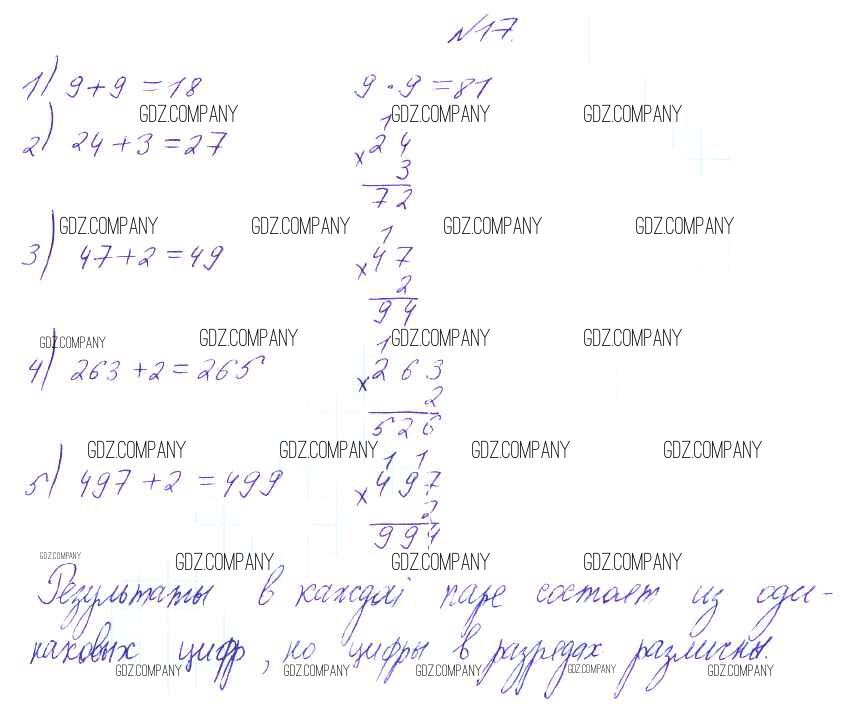 №17.
1) 9+9=18 9·9=81
GDZ.COMPANY GDZ.COMPANY GDZ.COMPANY
1
2) 24+3=27 × 24
3
72
GDZ.COMPANY GDZ.COMPANY GDZ.COMPANY GDZ.COMPANY
1
3) 47+2=49 × 47
2
94
GDZ.COMPANY GDZ.COMPANY GDZ.COMPANY GDZ.COMPANY
1
4) 263+2=265 × 263
2
526
GDZ.COMPANY GDZ.COMPANY GDZ.COMPANY GDZ.COMPANY
1 1
5) 497+2=499 × 497
2
994
GDZ.COMPANY GDZ.COMPANY GDZ.COMPANY GDZ.COMPANY
Результаты в каждой паре состоят из оди-
наковых цифр, но цифры в разрядах различны.
GDZ.COMPANY GDZ.COMPANY GDZ.COMPANY GDZ.COMPANY GDZ.COMPANY